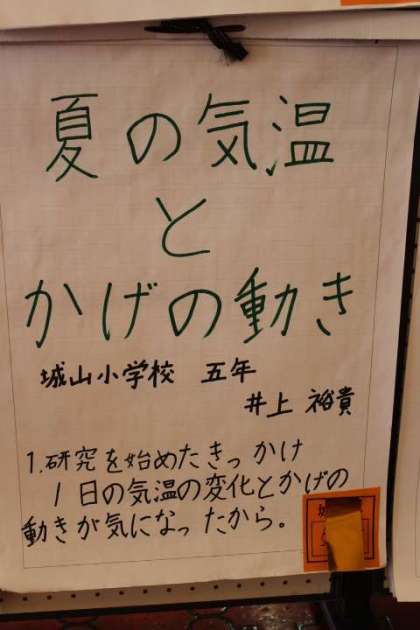 夏の気温
と
かげの動き
城山小学校 五年
井上 裕貴
1.研究を始めたきっかけ
1日の気温の変化とかげの
動きが気になったから。